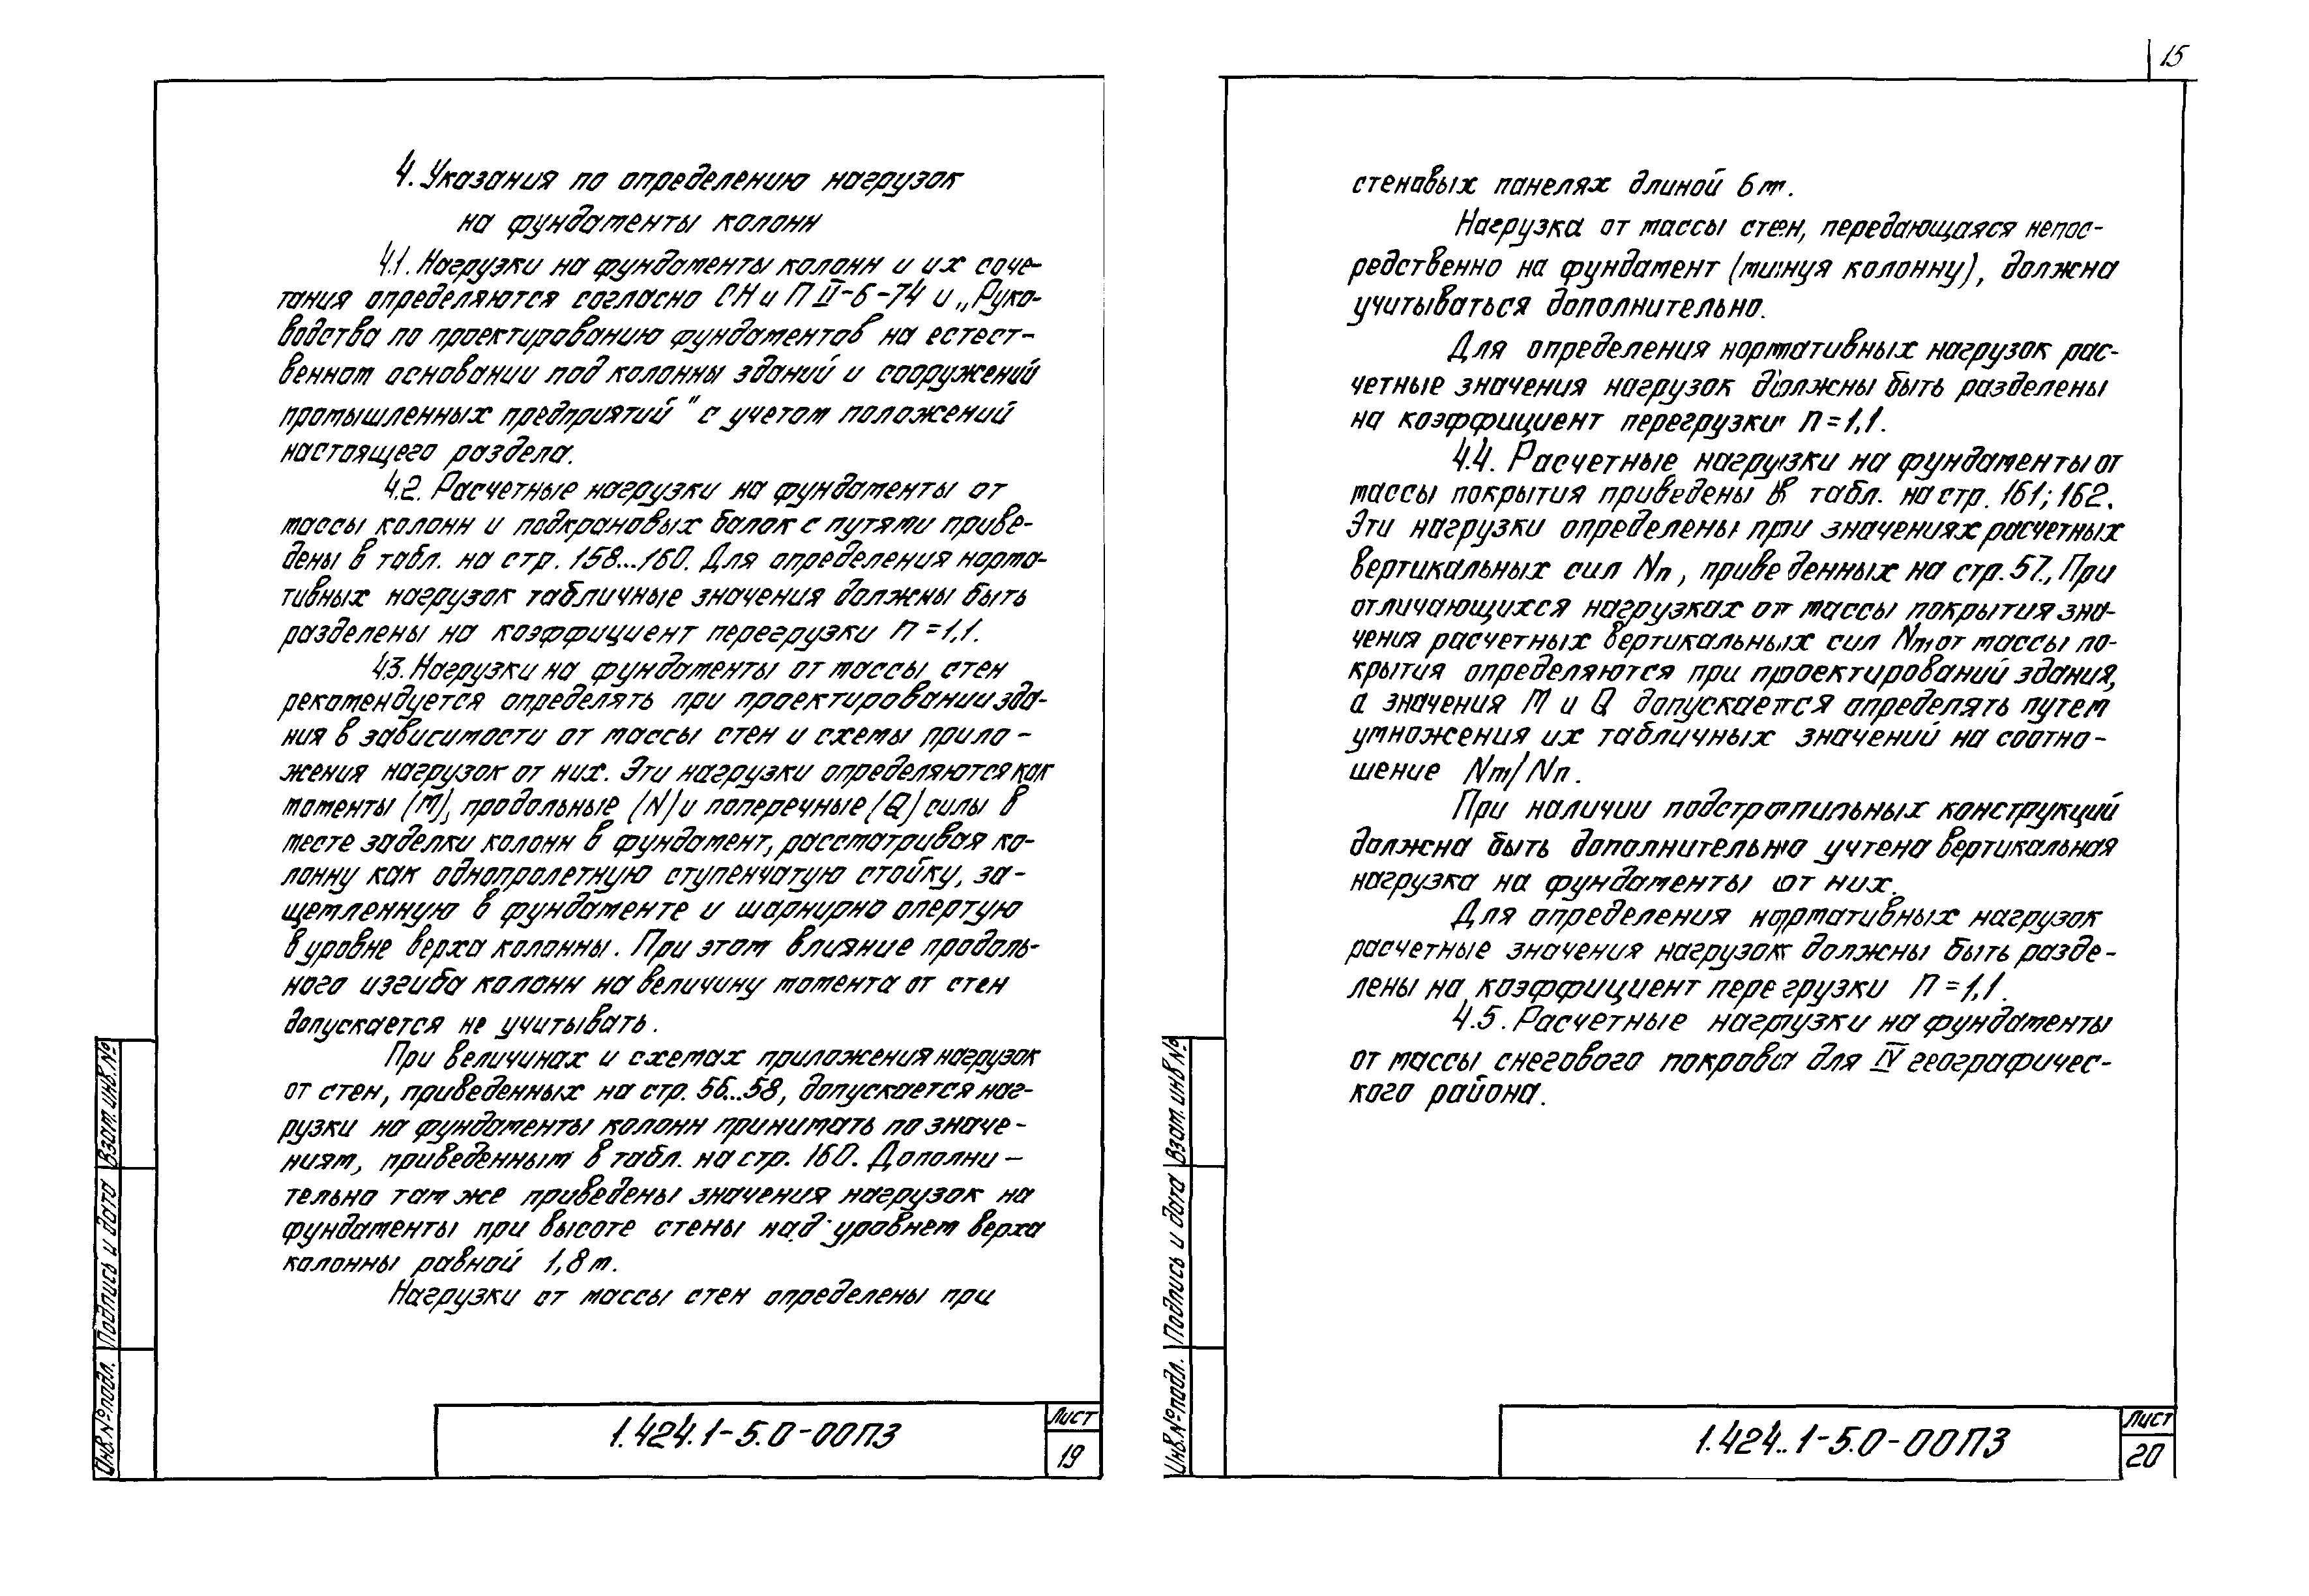 15
4. Указания по определению нагрузок
на фундаменты колонн
4.1. Нагрузки на фундаменты колонн и их соче-
тания определяются согласно СНиП II-6-74 и „Руко-
водства по проектированию фундаментов на естест-
венном основании под колонны зданий и сооружений
промышленных предприятий" с учетом положений
настоящего раздела.
4.2. Расчетные нагрузки на фундаменты от
массы колонн и подкрановых балок с путями приве-
дены в табл. на стр. 158...160. Для определения норма-
тивных нагрузок табличные значения должны быть
разделены на коэффициент перегрузки n = 1,1.
4.3. Нагрузки на фундаменты от массы стен
рекомендуется определять при проектировании зда-
ния в зависимости от массы стен и схемы прило-
жения нагрузок от них. Эти нагрузки определяются как
моменты (М), продольные (N) и поперечные (Q) силы в
месте заделки колонн в фундамент, рассматривая ко-
лонну как однопролетную ступенчатую стойку, за-
щемленную в фундаменте и шарнирно опертую
в уровне верха колонны. При этом влияние продоль-
ного изгиба колонн на величину момента от стен
допускается не учитывать.
При величинах и схемах приложения нагрузок
от стен, приведенных на стр. 56...58, допускается наг-
рузки на фундаменты колонн принимать по значе-
ниям, приведенным в табл. на стр. 160. Дополни-
тельно там же приведены значения нагрузок на
фундаменты при высоте стены над уровнем верха
колонны равной 1,8 м.
Нагрузки от массы стен определены при
Инв.№подл. Подпись и дата Взам.инв.№
1.424.1-5.0-00ПЗ
Лист
19
стеновых панелях длиной 6 м.
Нагрузка от массы стен, передающаяся непос-
редственно на фундамент (минуя колонну), должна
учитываться дополнительно.
Для определения нормативных нагрузок рас-
четные значения нагрузок должны быть разделены
на коэффициент перегрузки n = 1,1.
4.4. Расчетные нагрузки на фундаменты от
массы покрытия приведены в табл. на стр. 161; 162.
Эти нагрузки определены при значениях расчетных
вертикальных сил Nп, приведенных на стр. 57., При
отличающихся нагрузках от массы покрытия зна-
чения расчетных вертикальных сил Nm от массы по-
крытия определяются при проектирований здания,
а значения М и Q допускается определять путем
умножения их табличных значений на соотно-
шение Nm/Nп.
При наличии подстропильных конструкций
должна быть дополнительно учтена вертикальная
нагрузка на фундаменты от них.
Для определения нормативных нагрузок
расчетные значения нагрузок должны быть разде-
лены на коэффициент перегрузки n = 1,1.
4.5. Расчетные нагрузки на фундаменты
от массы снегового покрова для IV географичес-
кого района.
Инв.№подл. Подпись и дата Взам.инв№
1.424.1-5.0-00ПЗ
Лист
20